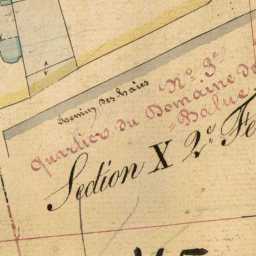 Chemin des haies
N.º 3.e
Quartier du Domaine de
Balue
Section X 2.e Fe